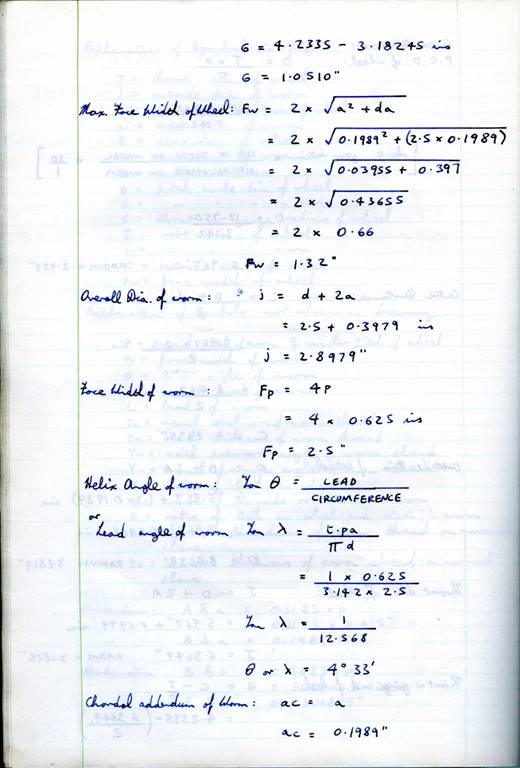 G = 4.2335 - 3.18245 ins
G = 1.0510"
Max. Face Width of Wheel: Fw = 2 × √a² + da
= 2 × √0.1989² + (2.5 × 0.1989)
= 2 × √0.03955 + 0.397
= 2 × √0.43655
= 2 × 0.66
Fw = 1.32"
Overall Dia. of worm: j = d + 2a
= 2.5 + 0.3979 ins
j = 2.8979"
Face Width of worm: Fp = 4P
= 4 × 0.625 ins
Fp = 2.5"
Helix Angle of worm: Tan θ = LEAD / CIRCUMFERENCE
or
Lead angle of worm Tan λ = t.pa / πd
= 1 × 0.625 / 3.142 × 2.5
Tan λ = 1 / 12.568
θ or λ = 4° 33'
Chordal addendum of Worm: ac = a
ac = 0.1989"